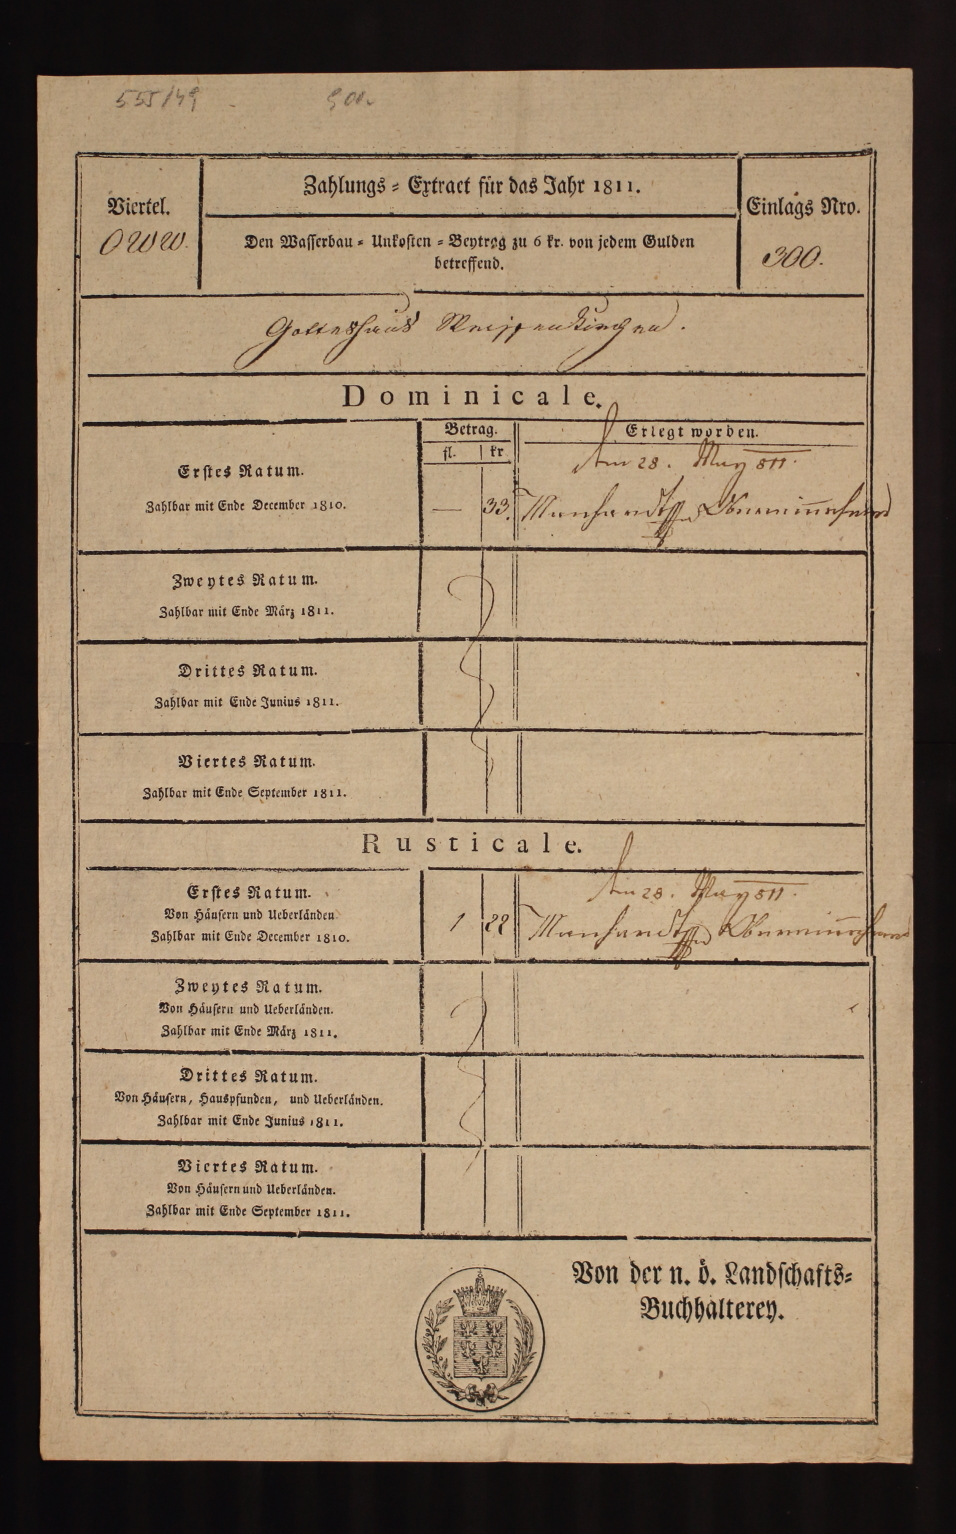 555/49
Viertel.
OWW.
Zahlungs = Extract für das Jahr 1811.
Den Wasserbau = Unkosten = Beytrag zu 6 kr. von jedem Gulden
betreffend.
Einlags Nro.
300.
Gotteshaus
Dominicale.
Betrag.
fl. kr
Erlegt worden.
Erstes Ratum.
Zahlbar mit Ende December 1810.
— 33.
Am 28. May 811.
Zweytes Ratum.
Zahlbar mit Ende März 1811.
Drittes Ratum.
Zahlbar mit Ende Junius 1811.
Viertes Ratum.
Zahlbar mit Ende September 1811.
Rusticale.
Erstes Ratum.
Von Häusern und Ueberländen
Zahlbar mit Ende December 1810.
1 22
Am 28. May 811.
Zweytes Ratum.
Von Häusern und Ueberländen.
Zahlbar mit Ende März 1811.
Drittes Ratum.
Von Häusern, Hauspfunden, und Ueberländen.
Zahlbar mit Ende Junius 1811.
Viertes Ratum.
Von Häusern und Ueberländen.
Zahlbar mit Ende September 1811.
Von der n. ö. Landschafts=
Buchhalterey.